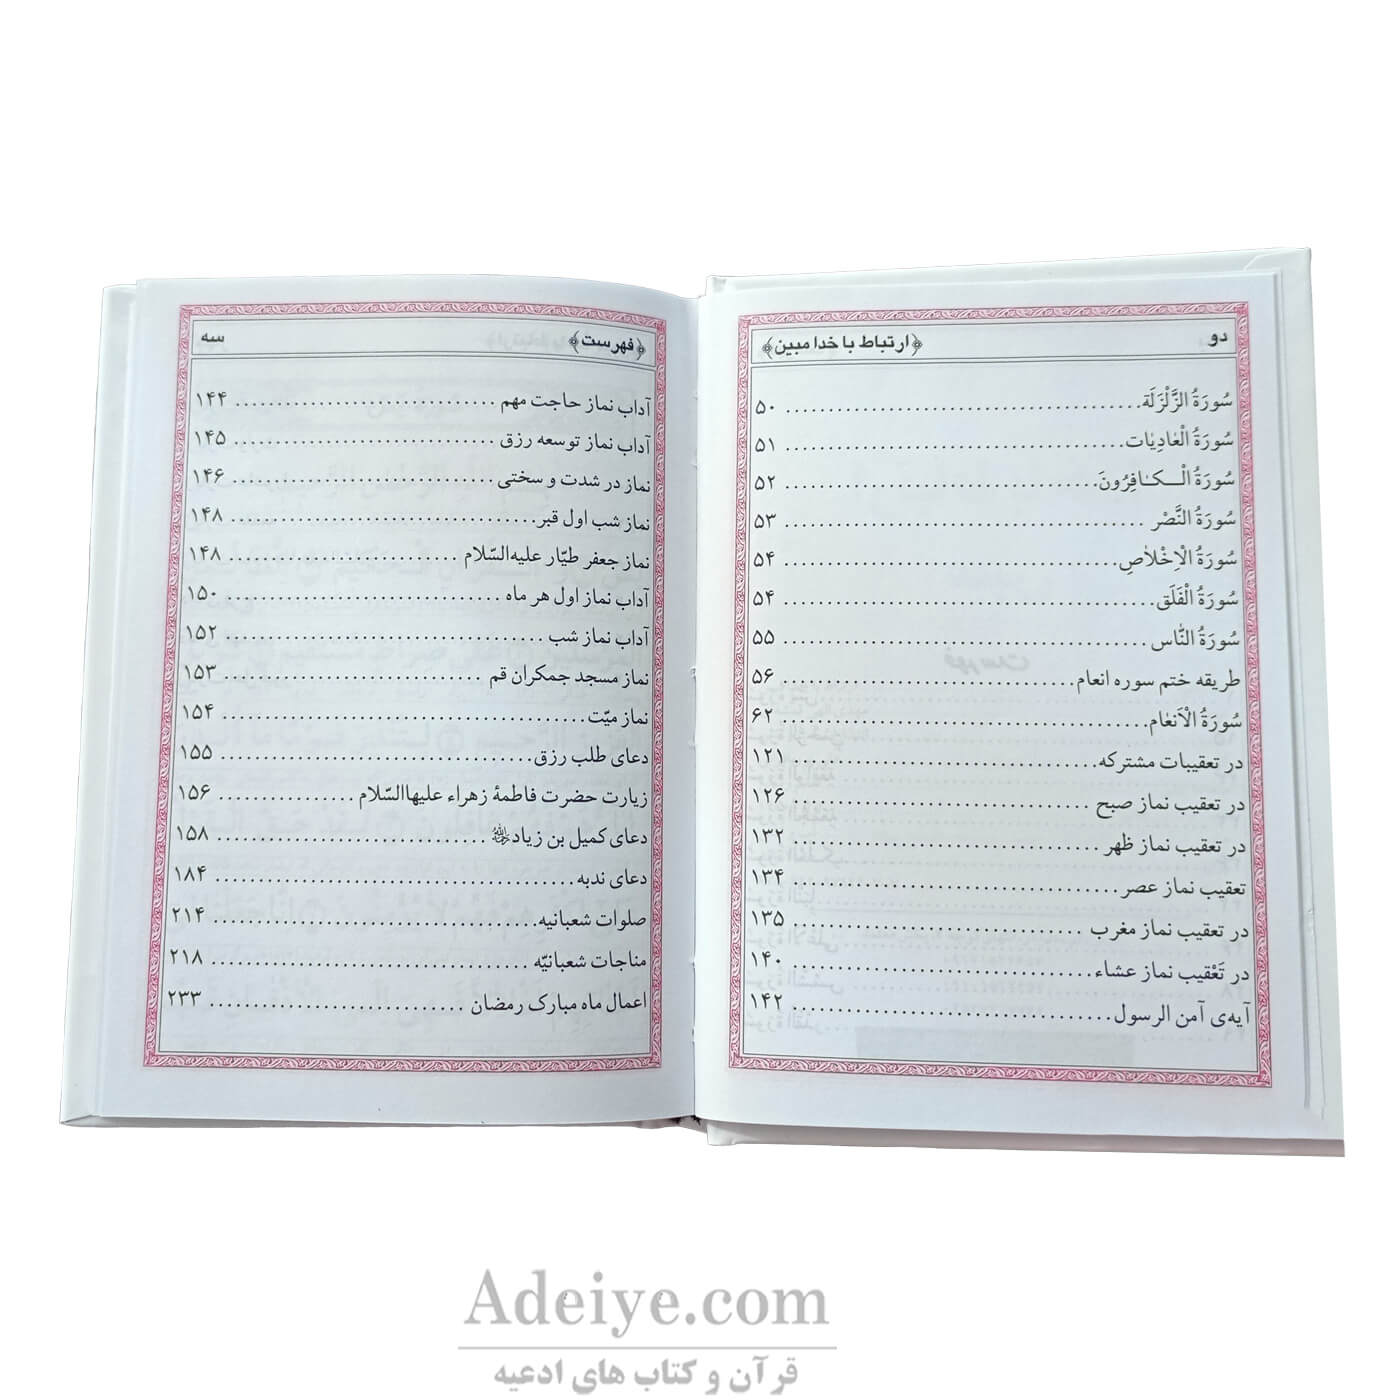 دو ﴿ارتباط با خدا مبین﴾
سُورَةُ الزَّلْزَلَة ........ ۵۰
سُورَةُ الْعٰادِیٰات ........ ۵۱
سُورَةُ الْــکٰافِرُونَ ........ ۵۲
سُورَةُ النَّصْر ........ ۵۳
سُورَةُ الْاِخْلاٰصِ ........ ۵۴
سُورَةُ الْفَلَق ........ ۵۴
سُورَةُ النّٰاس ........ ۵۵
طریقه ختم سوره انعام ........ ۵۶
سُورَةُ الْاَنعٰام ........ ۶۲
در تعقیبات مشترکه ........ ۱۲۱
در تعقیب نماز صبح ........ ۱۲۶
در تعقیب نماز ظهر ........ ۱۳۲
تعقیب نماز عصر ........ ۱۳۴
در تعقیب نماز مغرب ........ ۱۳۵
در تَعْقیب نماز عشاء ........ ۱۴۰
آیه‌ی آمن الرسول ........ ۱۴۲
﴿فهرست﴾ سه
آداب نماز حاجت مهم ........ ۱۴۴
آداب نماز توسعه رزق ........ ۱۴۵
نماز در شدت و سختی ........ ۱۴۶
نماز شب اول قبر ........ ۱۴۸
نماز جعفر طیّار علیه‌السّلام ........ ۱۴۸
آداب نماز اول هر ماه ........ ۱۵۰
آداب نماز شب ........ ۱۵۲
نماز مسجد جمکران قم ........ ۱۵۳
نماز میّت ........ ۱۵۴
دعای طلب رزق ........ ۱۵۵
زیارت حضرت فاطمهٔ زهراء علیهاالسّلام ........ ۱۵۶
دعای کمیل بن زیاد ........ ۱۵۸
دعای ندبه ........ ۱۸۴
صلوات شعبانیه ........ ۲۱۴
مناجات شعبانیّه ........ ۲۱۸
اعمال ماه مبارک رمضان ........ ۲۳۳
Adeiye.com
قرآن و کتاب های ادعیه